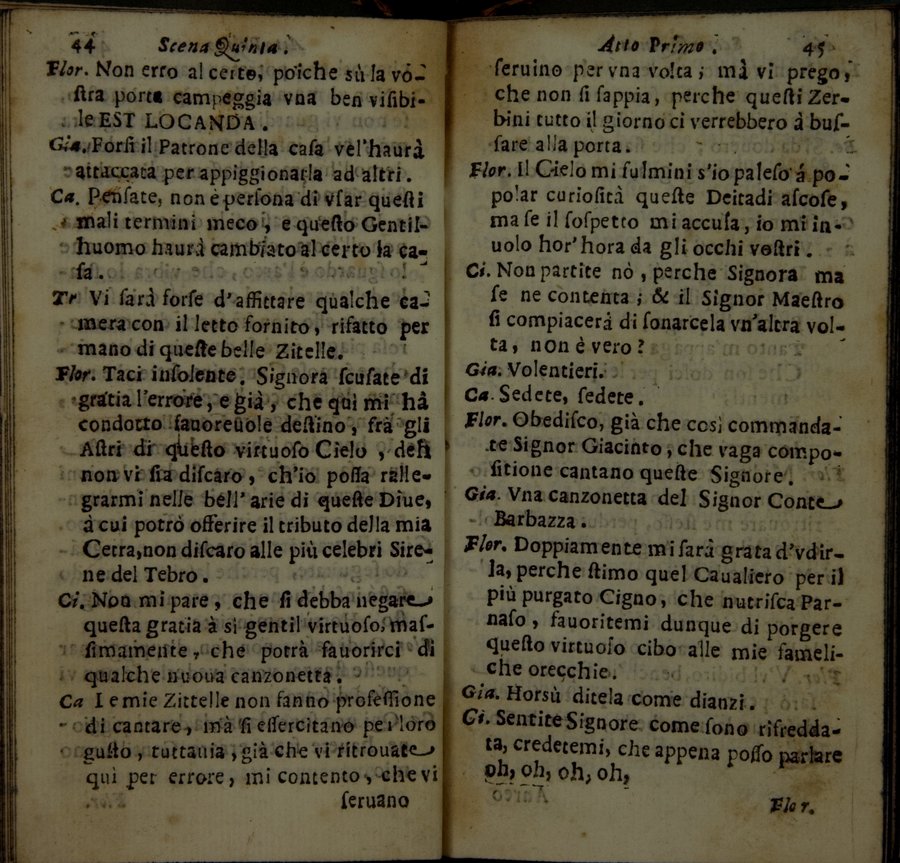 44 Scena Quinta.
Flor. Non erro al certo, poiche sù la vo-
ſtra porta campeggia vna ben viſibi-
le EST LOCANDA.
Gia. Forſi il Patrone della caſa vel'haurà
attaccata per appiggionarla ad altri.
Ca. Penſate, non è perſona di vſar queſti
mali termini meco, e queſto Gentil-
huomo haurà cambiato al certo la ca-
ſa.
Tr Vi ſarà forſe d'affittare qualche ca-
mera con il letto fornito, rifatto per
mano di queſte belle Zitelle.
Flor. Taci inſolente. Signora ſcuſate di
gratia l'errore, e già, che qui mi hà
condotto fauoreuole deſtino, frà gli
Aſtri di queſto virtuoſo Cielo, deh
non vi ſia diſcaro, ch'io poſſa ralle-
grarmi nelle bell' arie di queſte Diue,
à cui potrò offerire il tributo della mia
Cetra, non diſcaro alle più celebri Sire-
ne del Tebro.
Ci. Non mi pare, che ſi debba negare
queſta gratia à si gentil virtuoſo, maſ-
ſimamente, che potrà fauorirci di
qualche nuoua canzonetta.
Ca I e mie Zittelle non fanno profeſſione
di cantare, mà ſi eſſercitano per loro
guſto, tuttauia, già che vi ritrouate
qui per errore, mi contento, che vi
ſeruano
Atto Primo. 45
ſeruino per vna volta; mà vi prego,
che non ſi ſappia, perche queſti Zer-
bini tutto il giorno ci verrebbero à buſ-
ſare alla porta.
Flor. Il Cielo mi fulmini s'io paleſo á po-
polar curioſità queſte Deitadi aſcoſe,
ma ſe il ſoſpetto mi accuſa, io mi in-
uolo hor' hora da gli occhi voſtri.
Ci. Non partite nò, perche Signora ma
ſe ne contenta; & il Signor Maeſtro
ſi compiacerà di ſonarcela vn'altra vol-
ta, non è vero?
Gia. Volentieri.
Ca. Sedete, ſedete.
Flor. Obediſco, già che così commanda-
te Signor Giacinto, che vaga compo-
ſitione cantano queſte Signore.
Gia. Vna canzonetta del Signor Conte
Barbazza.
Flor. Doppiamente mi ſarà grata d'vdir-
la, perche ſtimo quel Caualiero per il
più purgato Cigno, che nutriſca Par-
naſo, fauoritemi dunque di porgere
queſto virtuoſo cibo alle mie fameli-
che orecchie.
Gia. Horsù ditela come dianzi.
Ci. Sentite Signore come ſono rifredda-
ta, credetemi, che appena poſſo parlare
oh, oh, oh, oh,
Flor.